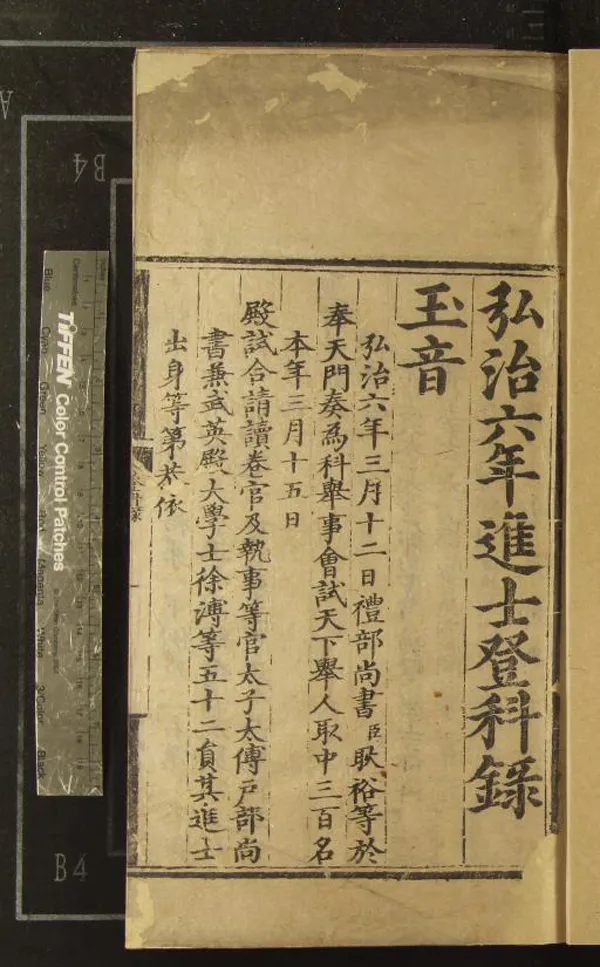 弘治六年進士登科錄
玉音
弘治六年三月十二日禮部尚書臣耿裕等於
奉天門奏爲科舉事會試天下舉人取中三百名
本年三月十五日
殿試合請讀卷官及執事等官太子太傅戶部尚
書兼武英殿大學士徐溥等五十二員其進士
出身等第恭依
TIFFEN Color Control Patches
Blue
Cyan
Green
Yellow
Red
Magenta
White
3/Color
Black
Centimetres
B4
B4
A